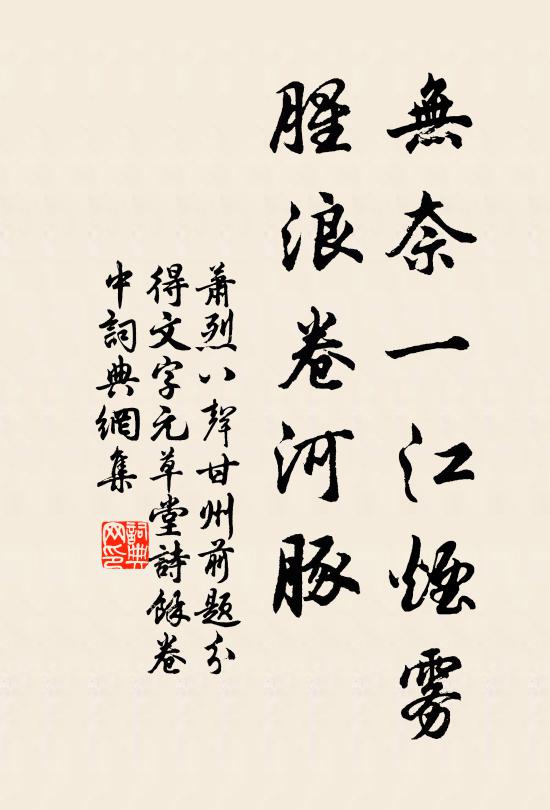 無奈一江煙霧
腥浪卷河豚
蕭烈八聲甘州前題分
得文字元草堂詩餘卷
中詞典網集
詞典網印